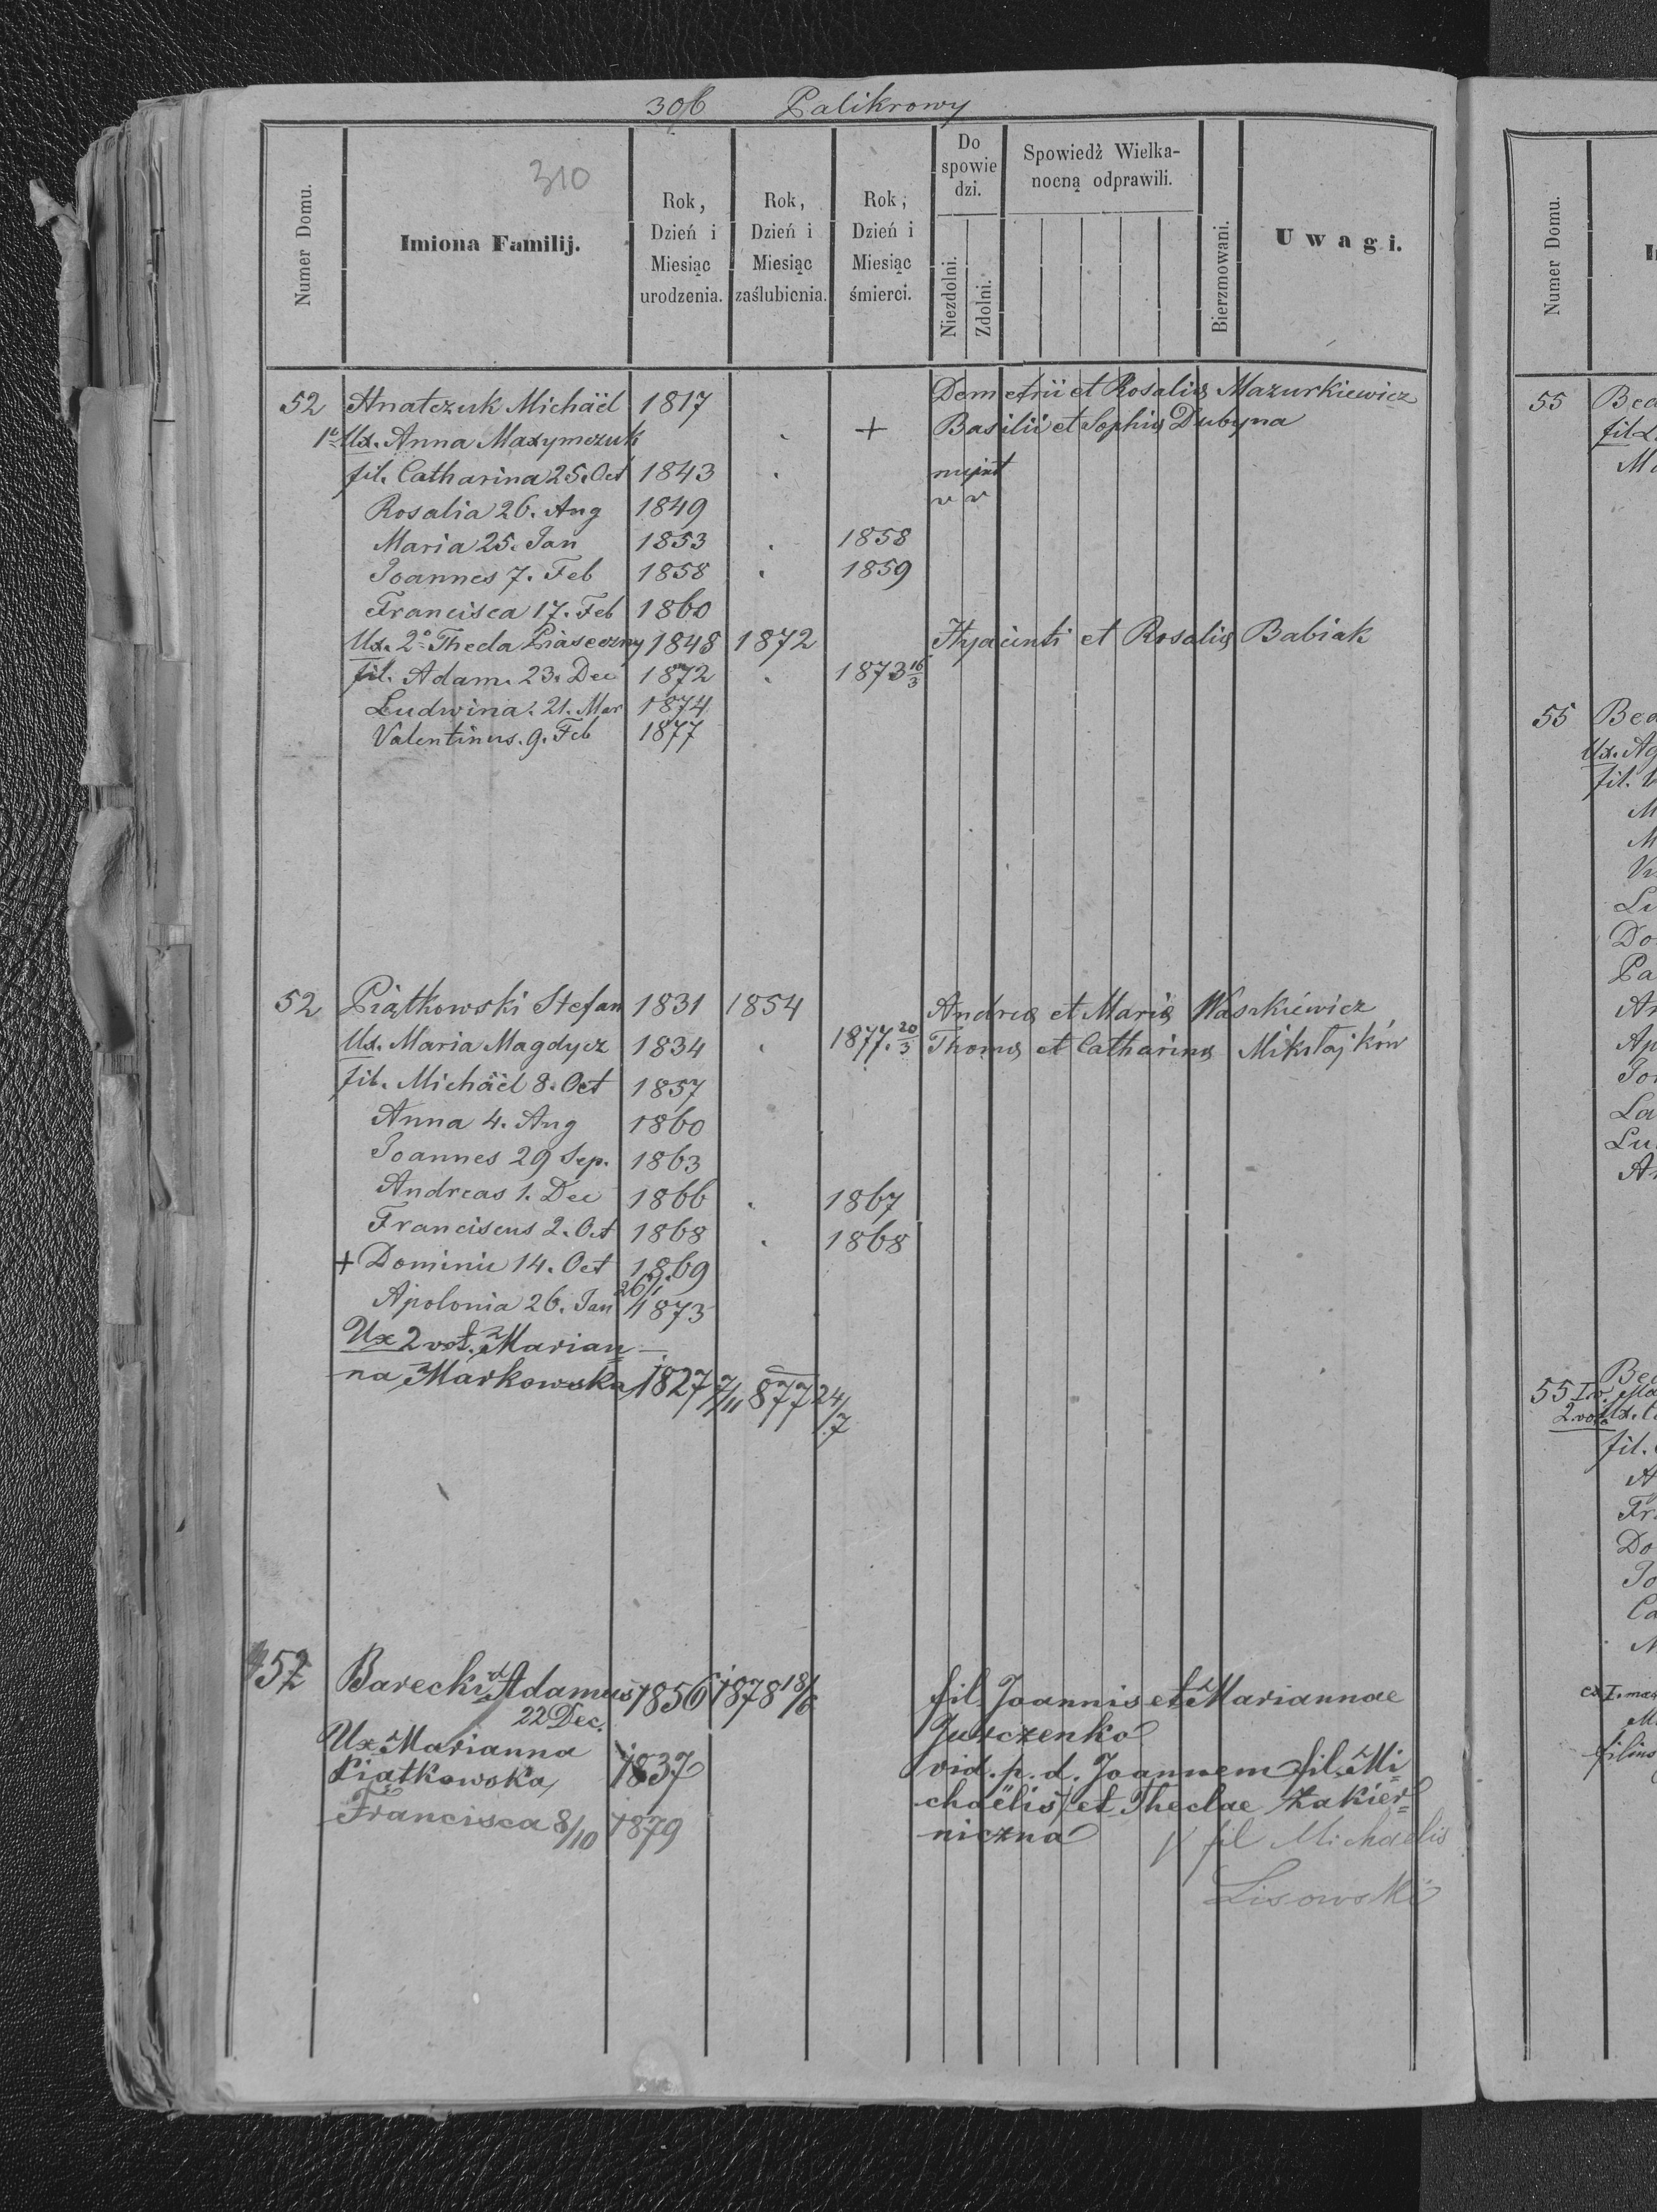 306 Palikrowy
310
Numer Domu.
Imiona Familij.
Rok, Dzień i Miesiąc urodzenia.
Rok, Dzień i Miesiąc zaślubienia.
Rok, Dzień i Miesiąc śmierci.
Do spowie dzi.
Niezdolni.
Zdolni.
Spowiedź Wielka-
nocną odprawili.
Bierzmowani.
Uwagi.
52 Anatczuk Michäel 1817 Demetrii et Rosaliæ Mazurkiewicz
1º Ux. Anna Maxymczuk . + Basilii et Sophiæ Dubyna
fil. Catharina 25. Oct 1843 .
Rosalia 26. Aug 1849
Maria 25. Jan 1853 . 1858
Joannes 7. Feb 1858 . 1859
Francisca 17. Feb 1860
Ux. 2º Thecla Piaseczny 1848 1872 Hyacinti et Rosaliæ Babiak
fil. Adam. 23. Dec 1872 . 1873 16/3
Ludwina. 21. Mar 1874
Valentinus. 9. Feb 1877
52 Piątkowski Stefan 1831 1854 Andreæ et Mariæ Waszkiewicz
Ux. Maria Magdycz 1834 . 1877. 20/3 Thomæ et Catharinæ Mikołajków
fil. Michäel 8. Oct 1857
Anna 4. Aug 1860
Joannes 29 Sep. 1863
Andreas 1. Dec 1866 . 1867
Franciscus 2. Oct 1868 . 1868
+ Dominic 14. Oct 1869
26/1
Apolonia 26. Jan 1873
Ux 2 vot. Marian-
na Markowska 1827 7/11 877 24/7
52 Barecki Adamus 1856 1878 18/6 fil. Joannis et Mariannae
22 Dec. Jurczenko
Ux Marianna vid. p. d. Joannem fil. Mi-
Piatkowska 1837 chaëlis et Theclae Zakier-
Francisca 8/10 1879 niczna fil Michaelis
Lisowski
Numer Domu.
55
fil
55
Ux. Ag
fil.
55
2. vot. Ux.
fil.
filius